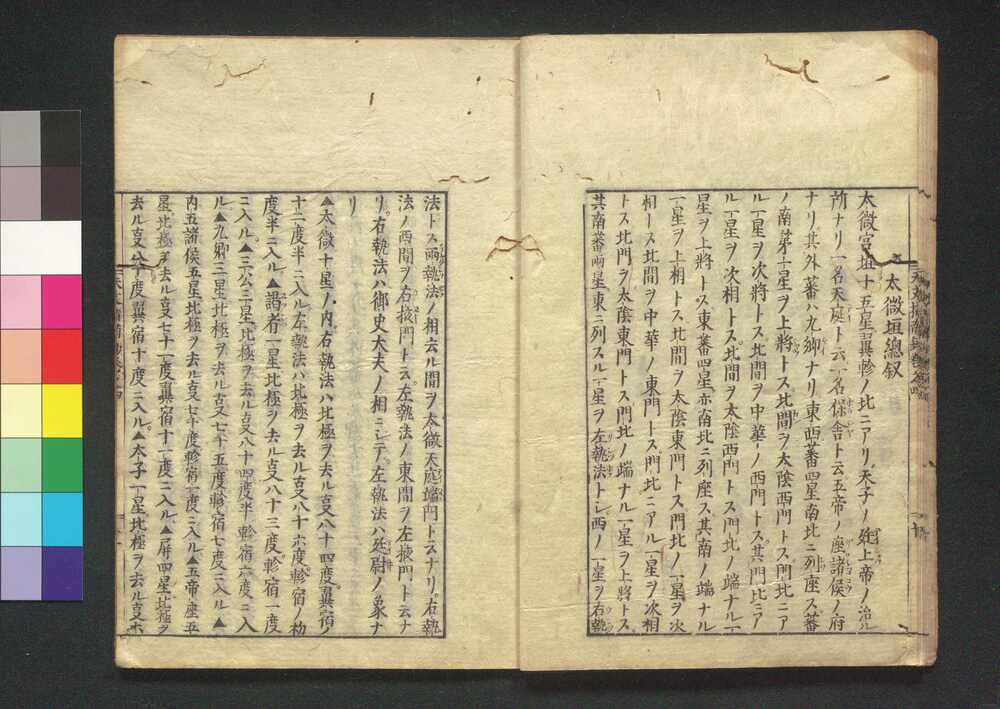 太微垣總叙
太微宮垣十五星翼軫ノ北ニアリ天子ノ廷上帝ノ治ル
所ナリ一名天庭ト云一名保舎ト云五帝ノ座諸侯ノ府
ナリ其外蕃ハ九卿ナリ東西蕃四星南北ニ列座ス蕃
ノ南第一星ヲ上將トス北間ヲ太陰西門トス門北ニア
ル一星ヲ次將トス北間ヲ中華ノ西門トス其門北ニア
ル一星ヲ次相トス北間ヲ太陰西門トス門北ノ端ナル一
星ヲ上將トス東蕃四星亦南北ニ列座ス其南ノ端ナル
一星ヲ上相トス北間ヲ太陰東門トス門北ノ一星ヲ次
相トス北間ヲ中華ノ東門トス門北ニアル一星ヲ次相
トス北門ヲ太陰東門トス門北ノ端ナル一星ヲ上將トス
其南蕃兩星東ニ列スル一星ヲ左執法トシ西ノ一星ヲ右執
法トス兩執法ノ相去ル間ヲ太微天庭端門ト云ナリ右執
法ノ西間ヲ右掖門トス左執法ノ東間ヲ左掖門ト云ナ
リ右執法ハ御史大夫ノ相ニシテ左執法ハ廷尉ノ象ナ
リ
▲太微十星ノ内右執法ハ北極ヲ去ル叓八十四度翼宿ノ
十二度半ニ入ル左執法ハ北極ヲ去ル叓八十六度軫宿ノ初
度半ニ入ル▲謁者一星北極ヲ去ル叓八十三度軫宿一度
ニ入ル▲三公三星北極ヲ去ル叓八十四度半軫宿六度ニ入
ル▲九卿三星北極ヲ去ル叓七十五度軫宿七度ニ入ル▲
内五諸侯五星北極ヲ去ル叓七十度軫宿一度ニ入ル▲五帝座五
星北極ヲ去ル叓七十一度翼宿十一度ニ入ル▲屏四星北極ヲ
去ル叓八十度翼宿十度ニ入ル▲太子一星北極ヲ去ル叓六